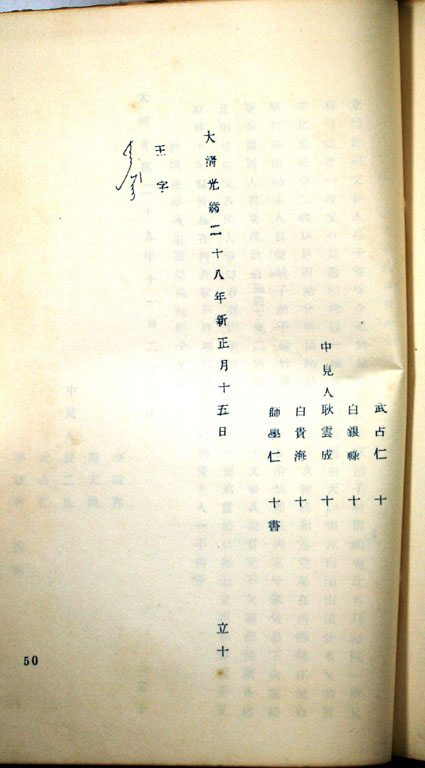 武占仁 十
白銀祿 十
中見人耿雲成 十
白貴海 十
師學仁 十書
大清光緒二十八年新正月十五日 立十
王字
50